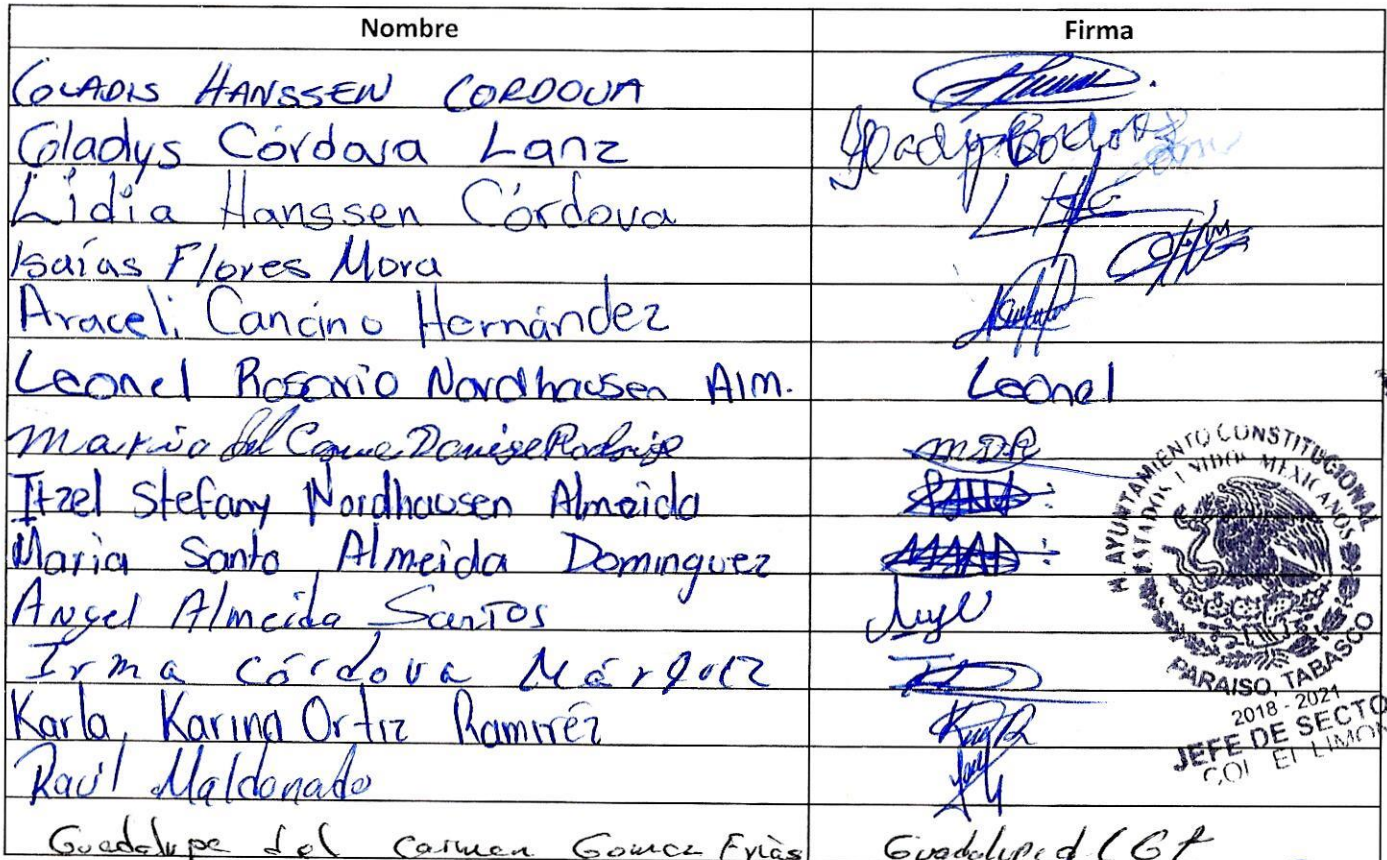 Nombre Firma
GLADIS HANSSEN CORDOVA
Gladys Córdova Lanz Gladys Cordova
Lidia Hanssen Córdova LHC
Isaías Flores Mora
Araceli Cancino Hernández
Leonel Rosario Nordhausen Alm. Leonel
Maria del MDR
Itzel Stefany Nordhausen Almeida
Maria Santo Almeida Dominguez MSAD:
Angel Almeida Santos Angel
Irma Córdova Márquez
Karla Karina Ortiz Ramiréz
Raúl Maldonado
Guadalupe del Carmen Gomez Frías Guadalupe d CGF
H. AYUNTAMIENTO CONSTITUCIONAL
ESTADOS UNIDOS MEXICANOS
PARAISO, TABASCO
2018 - 2021
JEFE DE SECTO
COL EL LIMON